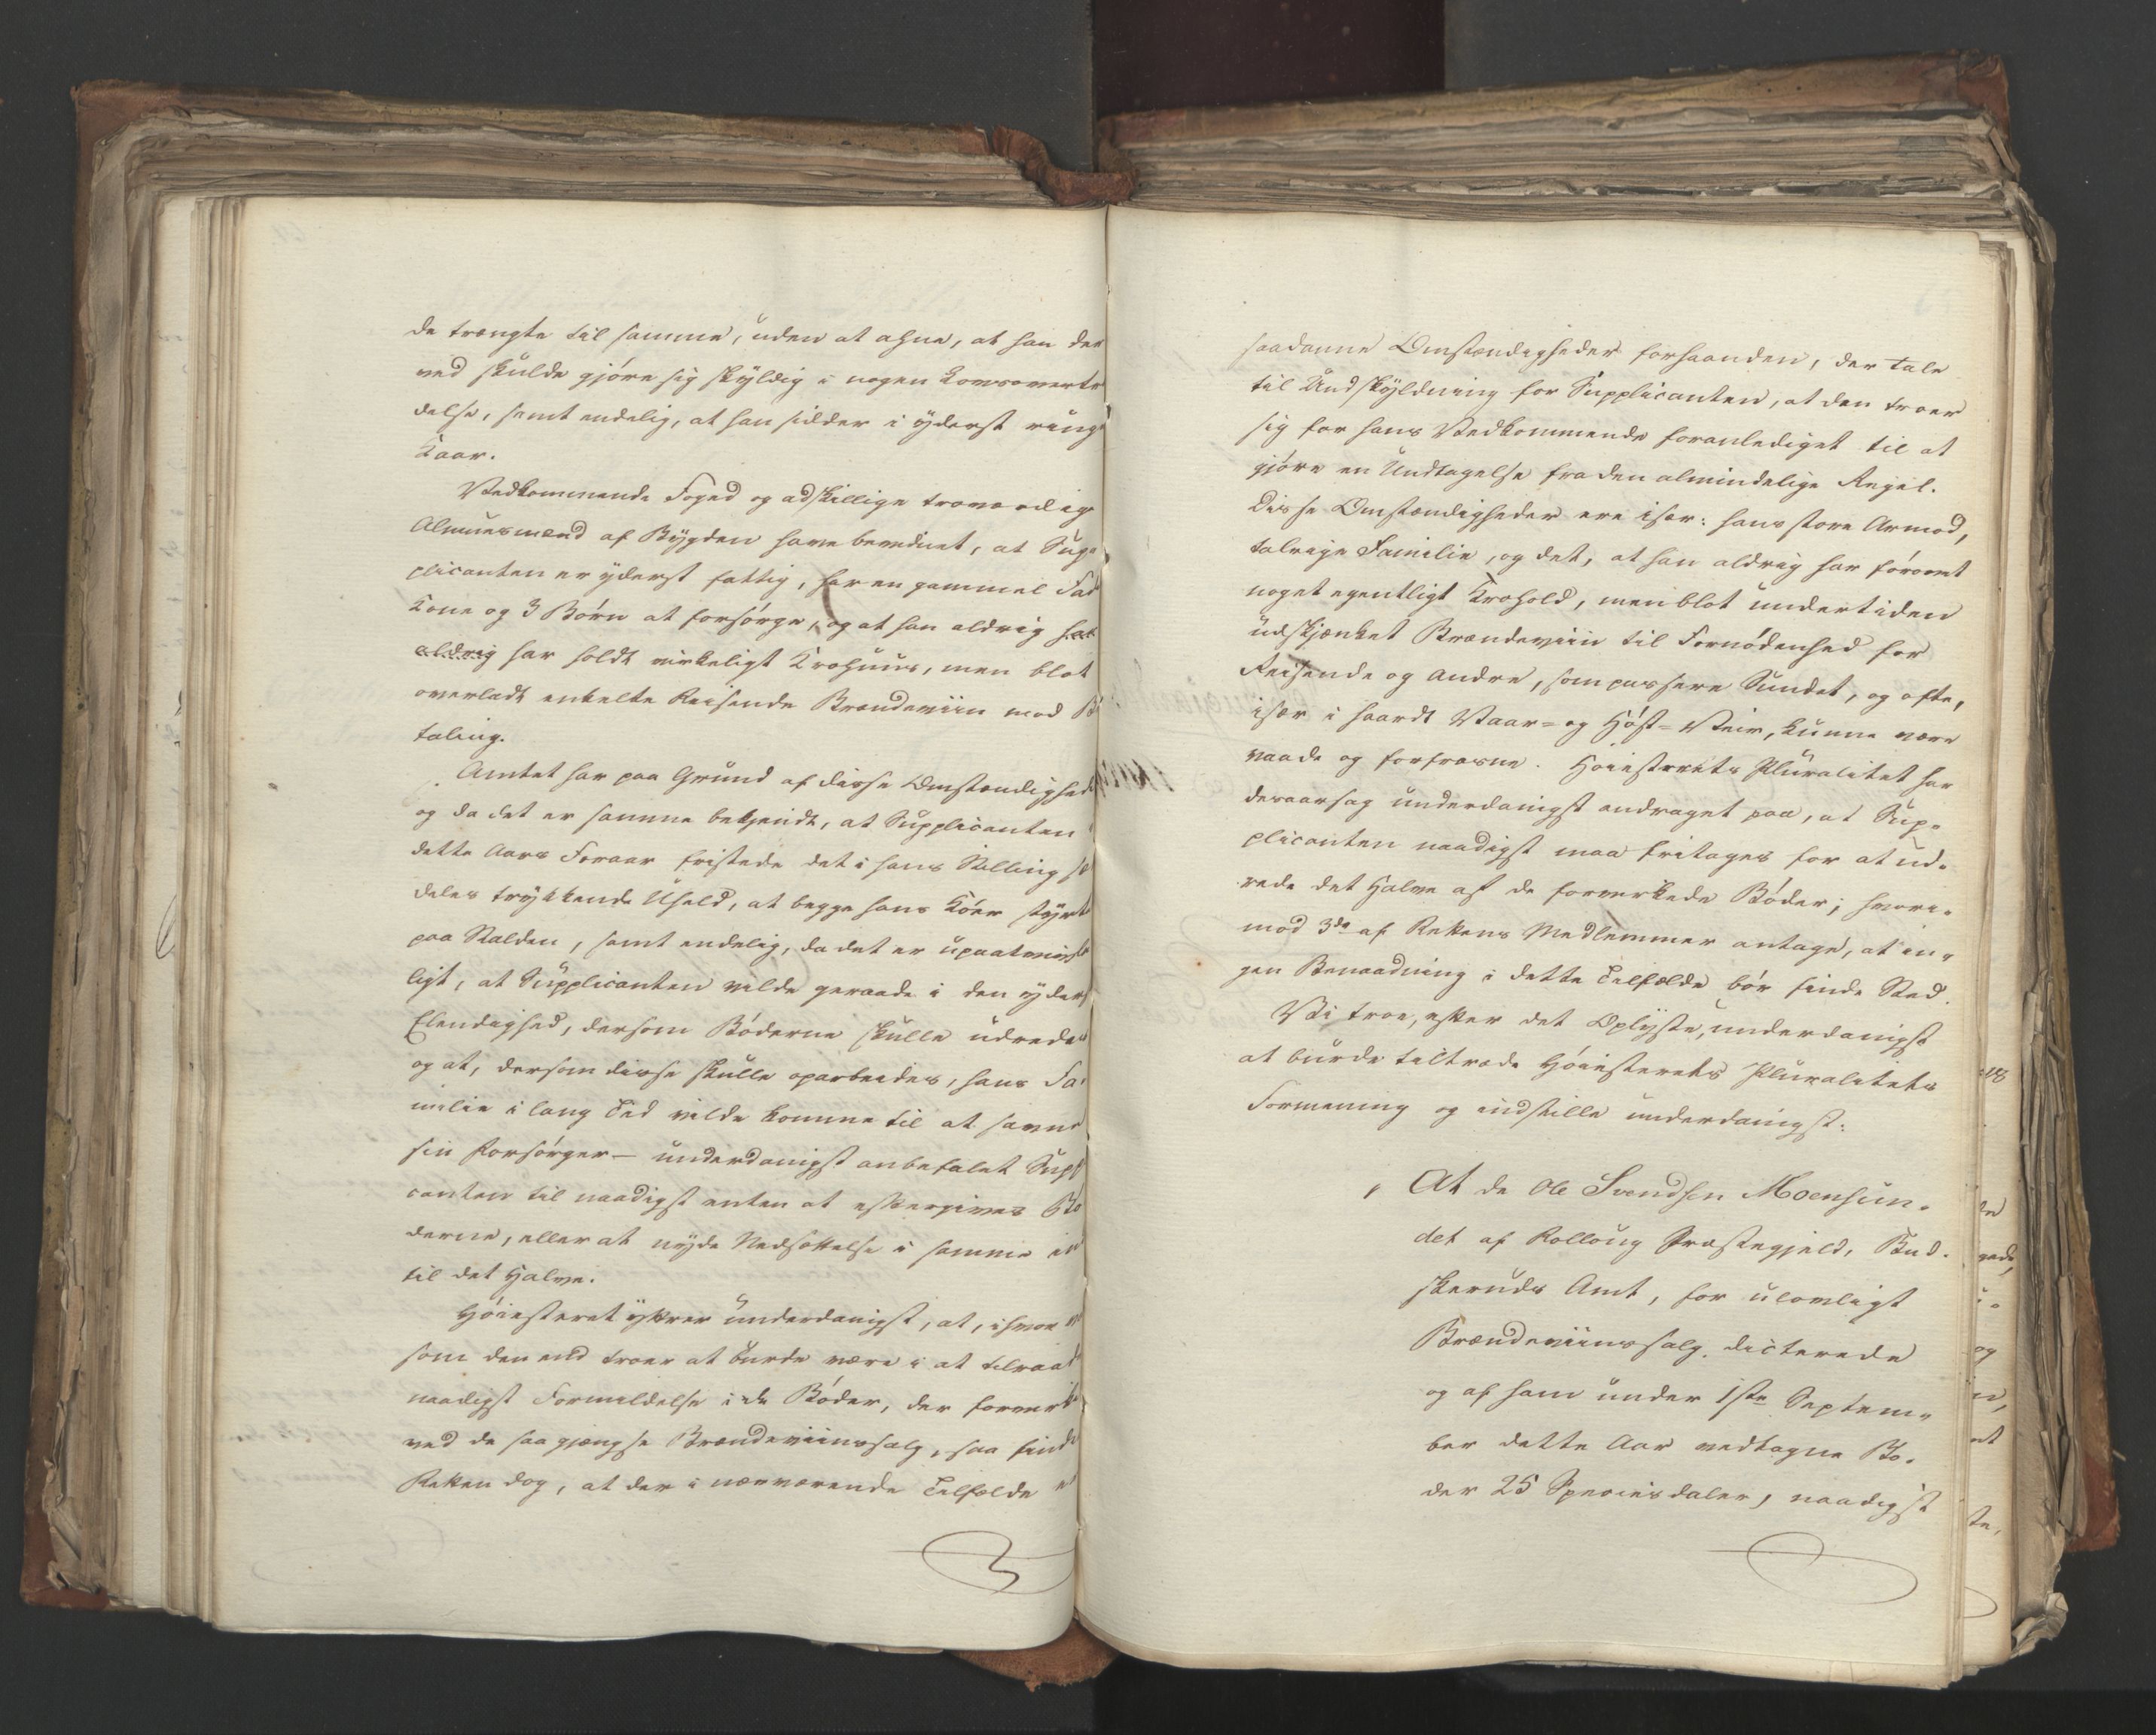 de trængte til samme, uden at ahne, at han der
ved skulde gjöre sig skyldig i nogen Lovsovertræ
delse, samt endelig, at han sidder i yderst ringe
Kaar.
Vedkommende Foged og adskillige troværdige
Almuesmænd af Bygden have bevidnet, at Sup
plicanten er yderst fattig, har en gammel Fad
Kone og 3 Börn at forsörge, og at han aldrig har
aldrig har holdt virkeligt Krohuus, men blot
overladt enkelte Reisende Brændeviin mod Be
taling.
Amtet har paa Grund af disse Omstændighed
og da det er samme bekjendt, at Supplicanten i
dette Aars Foraar fristede det i hans Stilling sær
deles trykkende Uheld, at begge hans Köer styrt
paa Stalden, samt endelig, da det er upaatvivle
ligt, at Supplicanten vilde geraade i den yderst
Elendighed, dersom Böderne skulle udredes
og at, dersom disse skulle oparbeides, hans Fa-
milie i lang Tid vilde komme til at savne
sin Forsörger – underdanigst anbefalet Suppl
canten til naadigst enten at eftergives Bö
derne, eller at nyde Nedsættelse i samme ind
til det Halve.
Höiesteret yttrer underdanigst, at, ihvor v
som den end troer at burde være i at tilraade
naadigst Formildelse i de Böder, der forvirk
ved de saa gjængse Brændeviinssalg, saa finde
Retten dog, at der i nærværende Tilfælde er
saadanne Omstændigheder forhaanden, der tale
til Undskyldning for Supplicanten, at den troer
sig for hans Vedkommende foranlediget til at
gjöre en Undtagelse fra den almindelige Regel.
Disse Omstændigheder ere især: hans store Armod,
talrige Familie, og det, at han aldrig har förövet
noget egentligt Krohold, men blot undertiden
udskjænket Brændeviin til Fornödenhed for
Reisende og Andre, som passere Sundet, og ofte,
især i haardt Vaar- og Höst-Veir, kunne være
vaade og forfrosne. Höiesterets Pluralitet har
desaarsag underdanigst andraget paa, at Sup-
plicanten naadigst maa fritages for at ud-
rede det Halve af de forvirkede Böder; hvori-
mod 3de af Rettens Medlemmer antage, at in-
gen Benaadning i dette Tilfælde bör finde Sted.
Vi troe, efter det Oplyste, underdanigst
at burde tiltræde Höiesterets Pluralitets
Formening og indstille underdanigst:
At de Ole Svendsen Moensun-
det af Rolloug Præstegjeld, Bud-
skeruds Amt, for ulovligt
Brændeviinssalg, dicterede
og af ham under 1ste Septem-
ber dette Aar vedtagne Bö-
der 25 Speciesdaler, naadigst